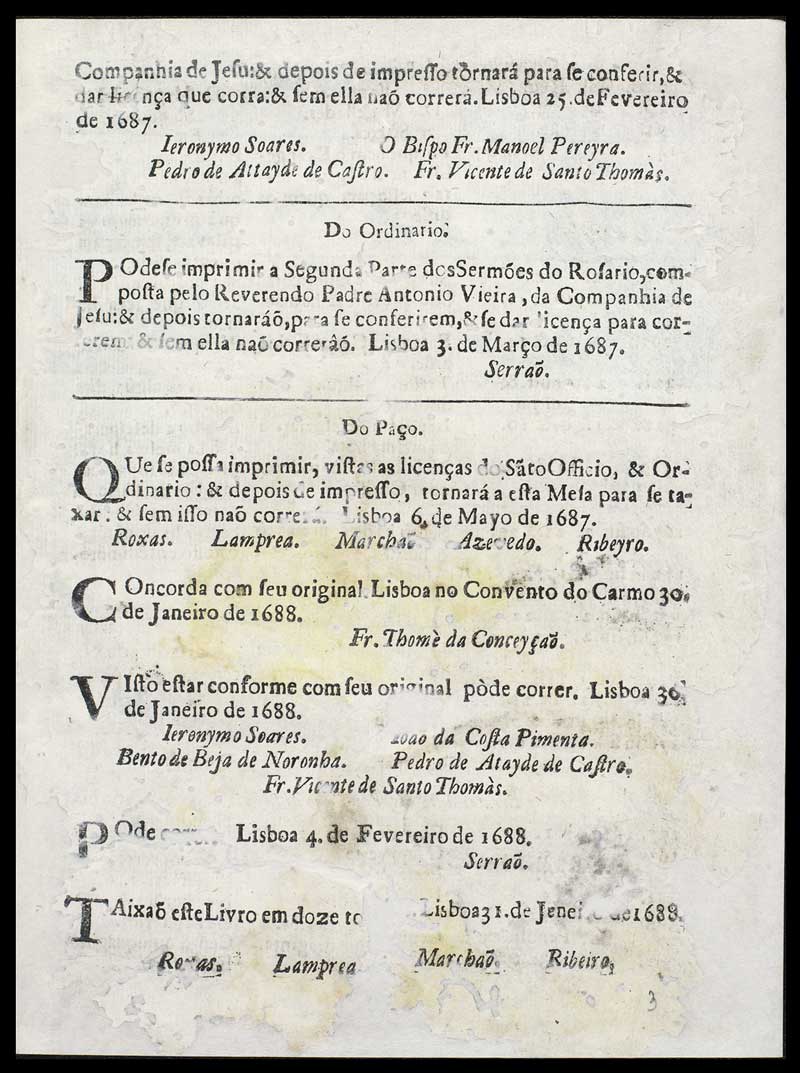 Companhia de Jeſu:& depois de impreſſo tornará para ſe conferir,&
dar licença que corra:& ſem ella naõ correrá.Lisboa 25.deFevereiro
de 1687.
Ieronymo Soares. O Biſpo Fr.Manoel Pereyra.
Pedro de Attayde de Caſtro. Fr. Vicente de Santo Thomàs.
Do Ordinario.
POdeſe imprimir a Segunda Parte dosSermões do Roſario,com-
poſta pelo Reverendo Padre Antonio Vieira ,da Companhia de
Jeſu:& depois tornaráõ,para ſe conferirem,&ſe dar licença para cor-
rerem: & ſem ella naõ correráõ. Lisboa 3. de Março de 1687.
Serraõ.
Do Paço.
QUe ſe poſſa imprimir, viſtas as licenças do SãtoOfficio, & Or-
dinario : & depois de impreſſo, tornará a eſta Meſa para ſe ta-
xar. & ſem iſſo naõ correrá. Lisboa 6.de Mayo de 1687.
Roxas. Lamprea. Marchaõ Azevedo. Ribeyro.
COncorda com ſeu original.Lisboa no Convento do Carmo 30.
de Janeiro de 1688.
Fr. Thomè da Conceyçaõ.
VIſto eſtar conforme com ſeu original pòde correr. Lisboa 30.
de Janeiro de 1688.
Ieronymo Soares. Ioao da Coſta Pimenta.
Bento de Beja de Noronha. Pedro de Atayde de Caſtro.
Fr.Vicente de Santo Thomàs.
POde correr. Lisboa 4. de Fevereiro de 1688.
Serraõ.
TAixaõ eſteLivro em doze to Lisboa31.de Janeiro de1688.
Roxas. Lamprea Marchaõ. Ribeiro.
3